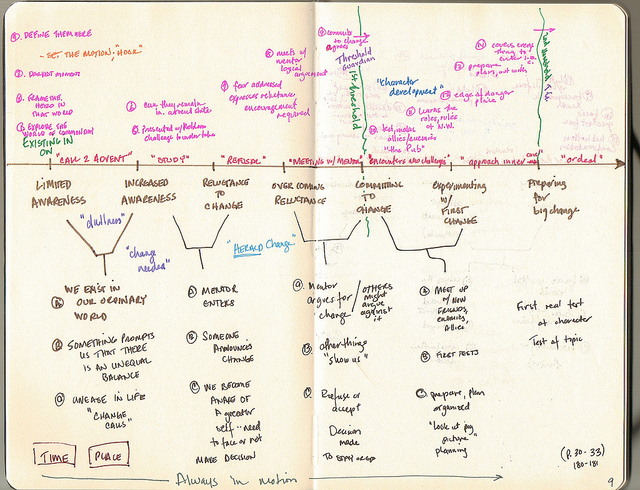 DEFINE THEM HERE
- SET THE MOTION; "HOOK"
DARKEST MOMENT
FRAME THE
HERO IN
THAT WORLD
EXPLORE THE
WORLD OF
EXISTING IN
ON
"CALL 2 ADVENT"
"STUDY"
"REFUSAL"
"MEETING W/ MENTOR"
"encounters and challenges"
"approach inner
"ordeal"
can they remain
in current state
Presented w/ Problem
challenge to undertake
fear addressed
expresses reluctance
encouragement
required
meets w/
mentor
logical
argument
commits
to change
agrees
Threshold
Guardian
1st threshold
"character
development"
learns the
rules, roles
of N.W.
test, makes
allies/enemies
"the Pub"
edge of danger
place
prepare
plans, out with
covers every
thing to
LIMITED
AWARENESS
INCREASED
AWARENESS
RELUCTANCE
TO
CHANGE
OVERCOMING
RELUCTANCE
COMMITTING
TO
CHANGE
Experimenting
w/
FIRST
CHANGE
Preparing
for
big change
"dullness"
"change
needed"
"HERALD Change"
WE EXIST IN
A OUR ORDINARY
WORLD
B SOMETHING PROMPTS
US THAT THERE
IS AN UNEQUAL
BALANCE
C UNEASE IN LIFE
"CHANGE
CALLS"
A MENTOR
ENTERS
B SOMEONE
ANNOUNCES
CHANGE
C WE BECOME
AWARE OF
A greater
self-need
to face or not
MAKE DECISION
a. Mentor
argues for
change
/ OTHERS
might
argue
against
it
b. other things
"show us"
c. Refuse or
accept
Decision
made
TO STAY or GO
A MEET UP
w/ NEW
FRIENDS,
enemies,
Allies
B FIRST TESTS
C prepare, plan
organized
"look at big
picture"
planning
First real test
of character
Test of topic
TIME
PLACE
Always in motion
(P. 30-33)
180-181
9